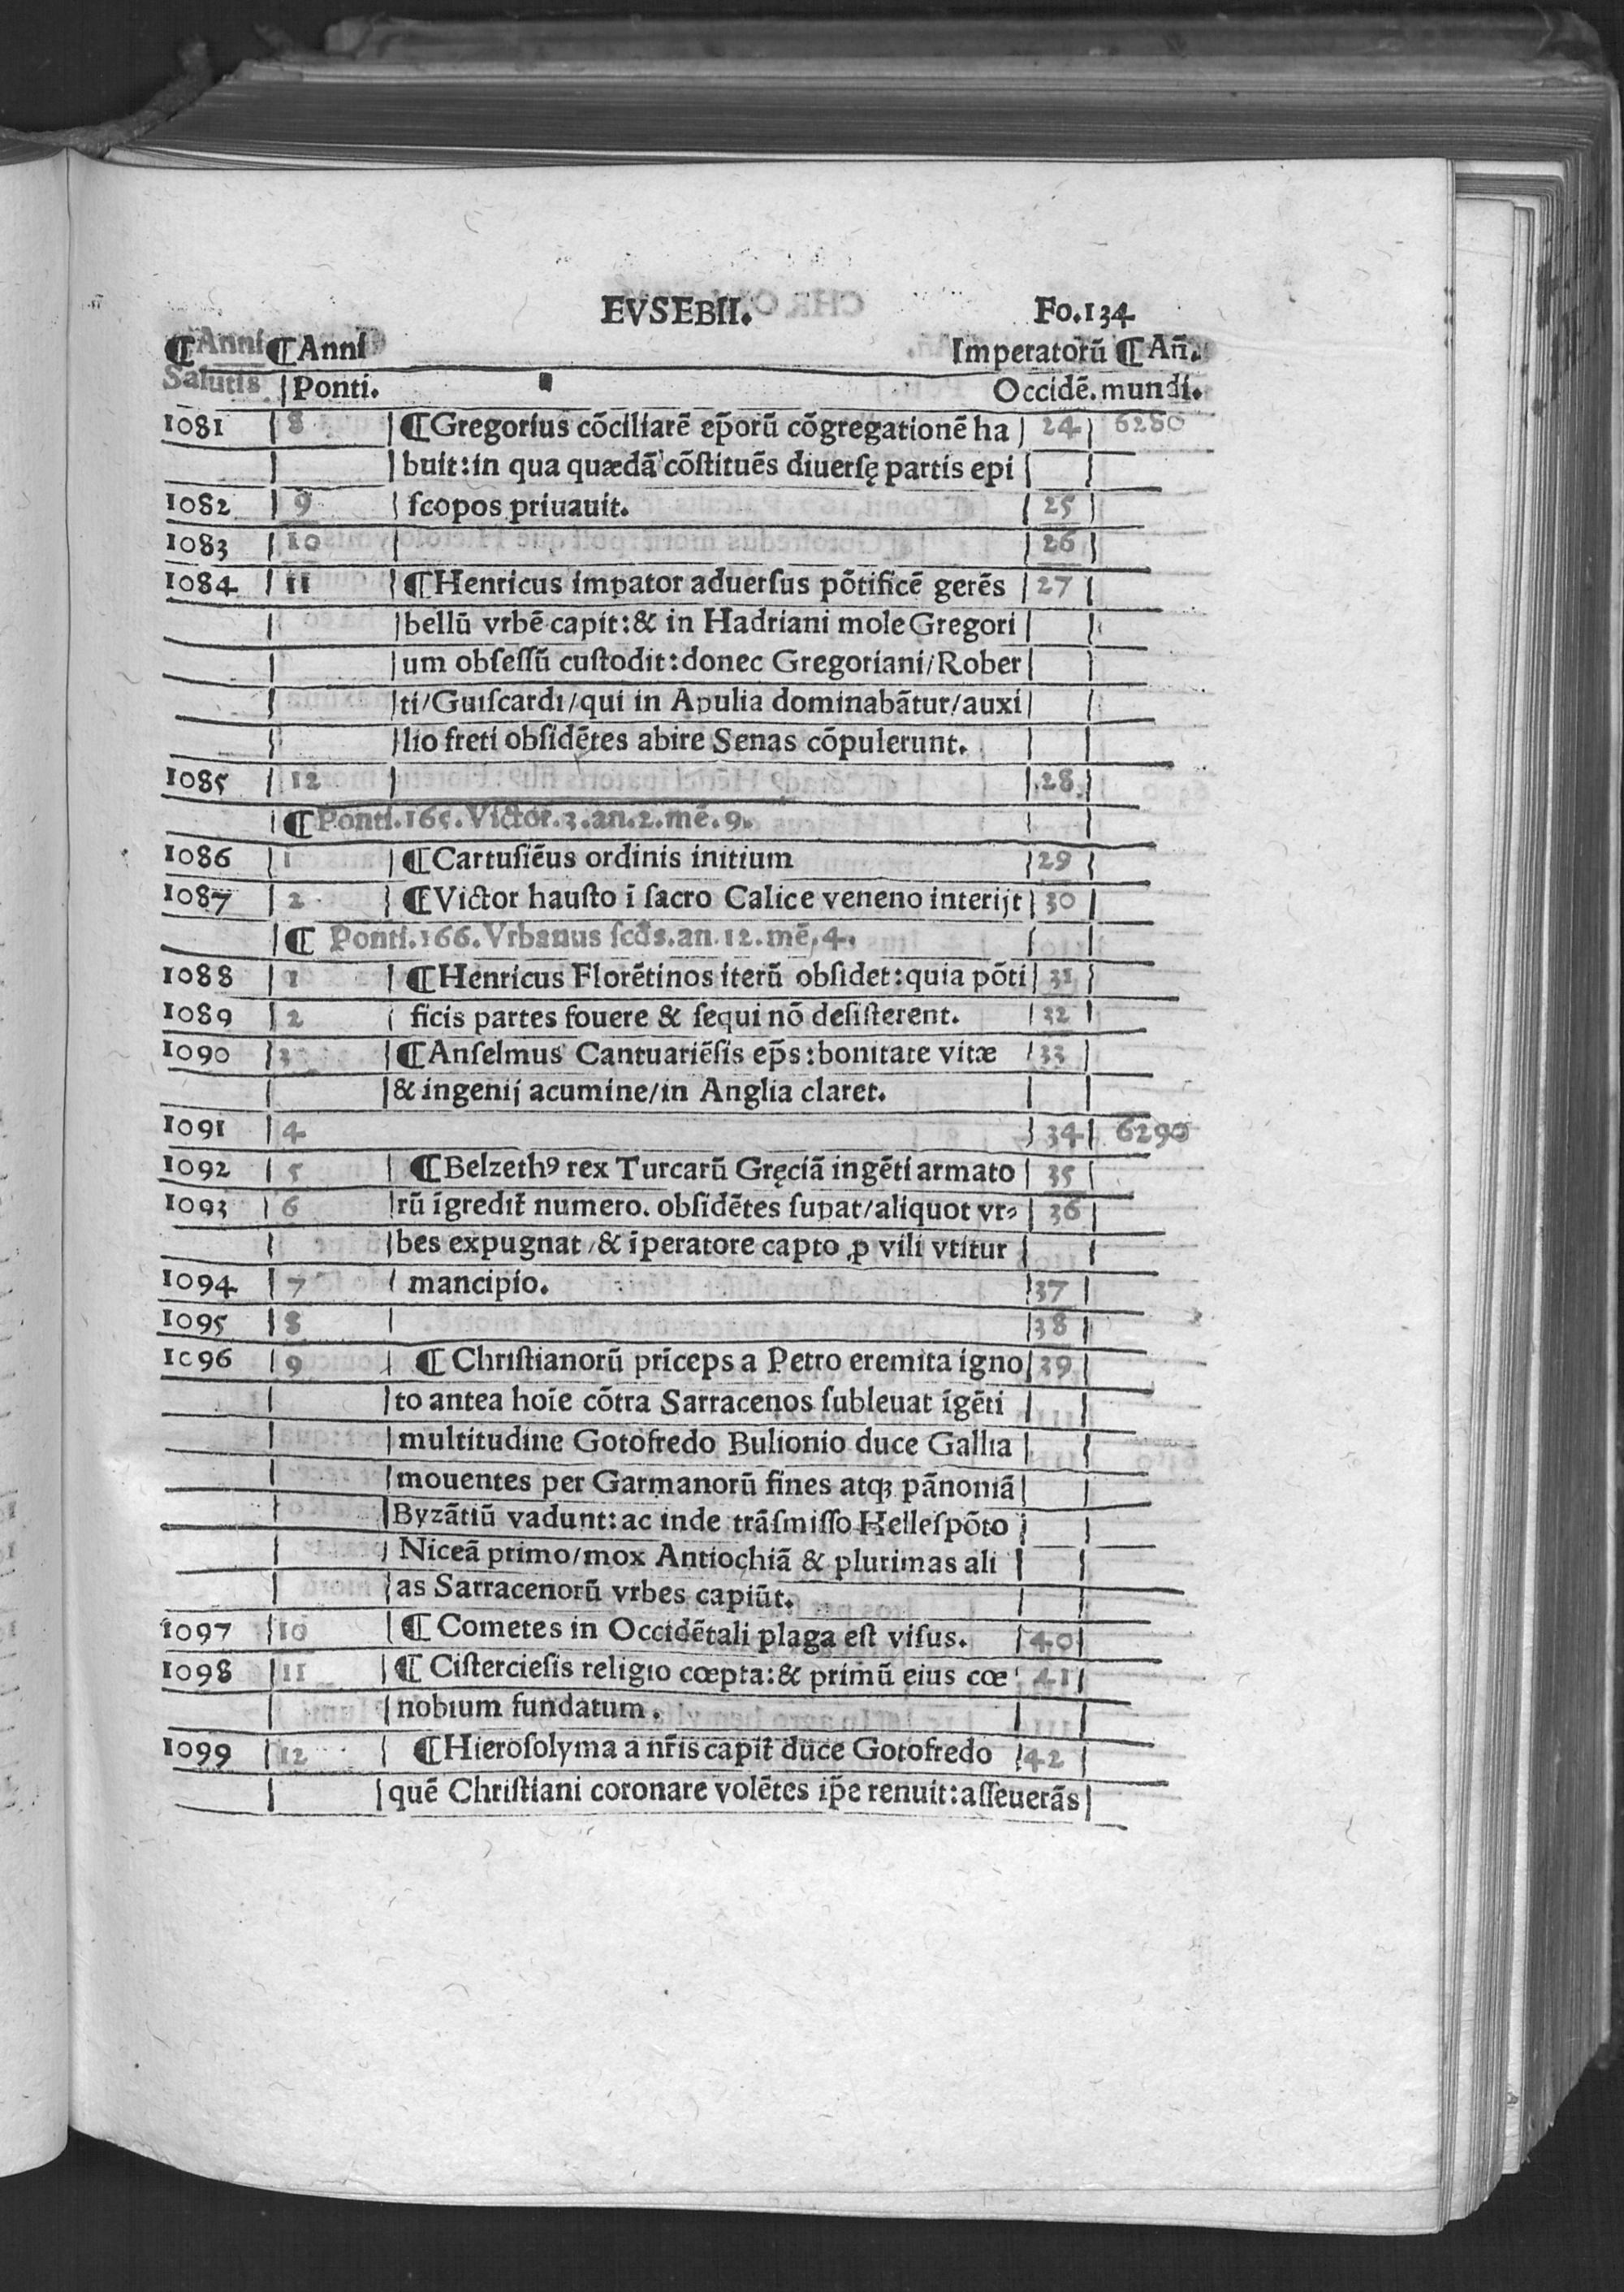 EVSEBII. Fo.134
¶Anni ¶Anni Imperatorū ¶Añ.
Salutis Ponti. Occidē. mundi.
1081 8 ¶Gregorius cōciliarē ep̄orū cōgregationē ha 24 6280
buit:in qua quædā cōſtituēs diuerſę partis epi
1082 9 ſcopos priuauit. 25
1083 10 26
1084 11 ¶Henricus imꝑator aduerſus pōtificē gerēs 27
bellū vrbē capit:& in Hadriani mole Gregori
um obſeſſū cuſtodit:donec Gregoriani/Rober
ti/Guiſcardi/qui in Apulia dominabātur/auxi
lio freti obſidētes abire Senas cōpulerunt.
1085 12 28
¶Ponti.165.Victor.3.an.2.mē.9.
1086 1 ¶Cartuſiēus ordinis initium 29
1087 2 ¶Victor hauſto ī ſacro Calice veneno interijt 30
¶ Ponti.166.Vrbanus ſcd̄s.an.12.mē.4.
1088 1 ¶Henricus Florētinos iterū obſidet:quia pōti 31
1089 2 ficis partes fouere & ſequi nō deſiſterent. 32
1090 3 ¶Anſelmus Cantuariēſis ep̄s:bonitate vitæ 33
& ingenij acumine/in Anglia claret.
1091 4 34 6290
1092 5 ¶Belzethꝰ rex Turcarū Gręciā ingēti armato 35
1093 6 rū īgredit᷑ numero. obſidētes ſuꝑat/aliquot vr⸗ 36
bes expugnat/& īperatore capto ꝓ vili vtitur
1094 7 mancipio. 37
1095 8 38
1096 9 ¶ Chriſtianorū prīceps a Petro eremita igno 39
to antea hoīe cōtra Sarracenos ſubleuat īgēti
multitudine Gotofredo Bulionio duce Gallia
mouentes per Garmanorū fines atqꝫ pānoniā
Byzātiū vadunt:ac inde trāſmiſſo Helleſpōto
Niceā primo/mox Antiochiā & plurimas ali
as Sarracenorū vrbes capiūt.
1097 10 ¶ Cometes in Occidētali plaga eſt viſus. 40
1098 11 ¶ Ciſtercieſis religio cœpta:& primū eius cœ 41
nobium fundatum.
1099 12 ¶Hieroſolyma a nr̄is capit᷑ duce Gotofredo 42
quē Chriſtiani coronare volētes ip̄e renuit:aſſeuerās